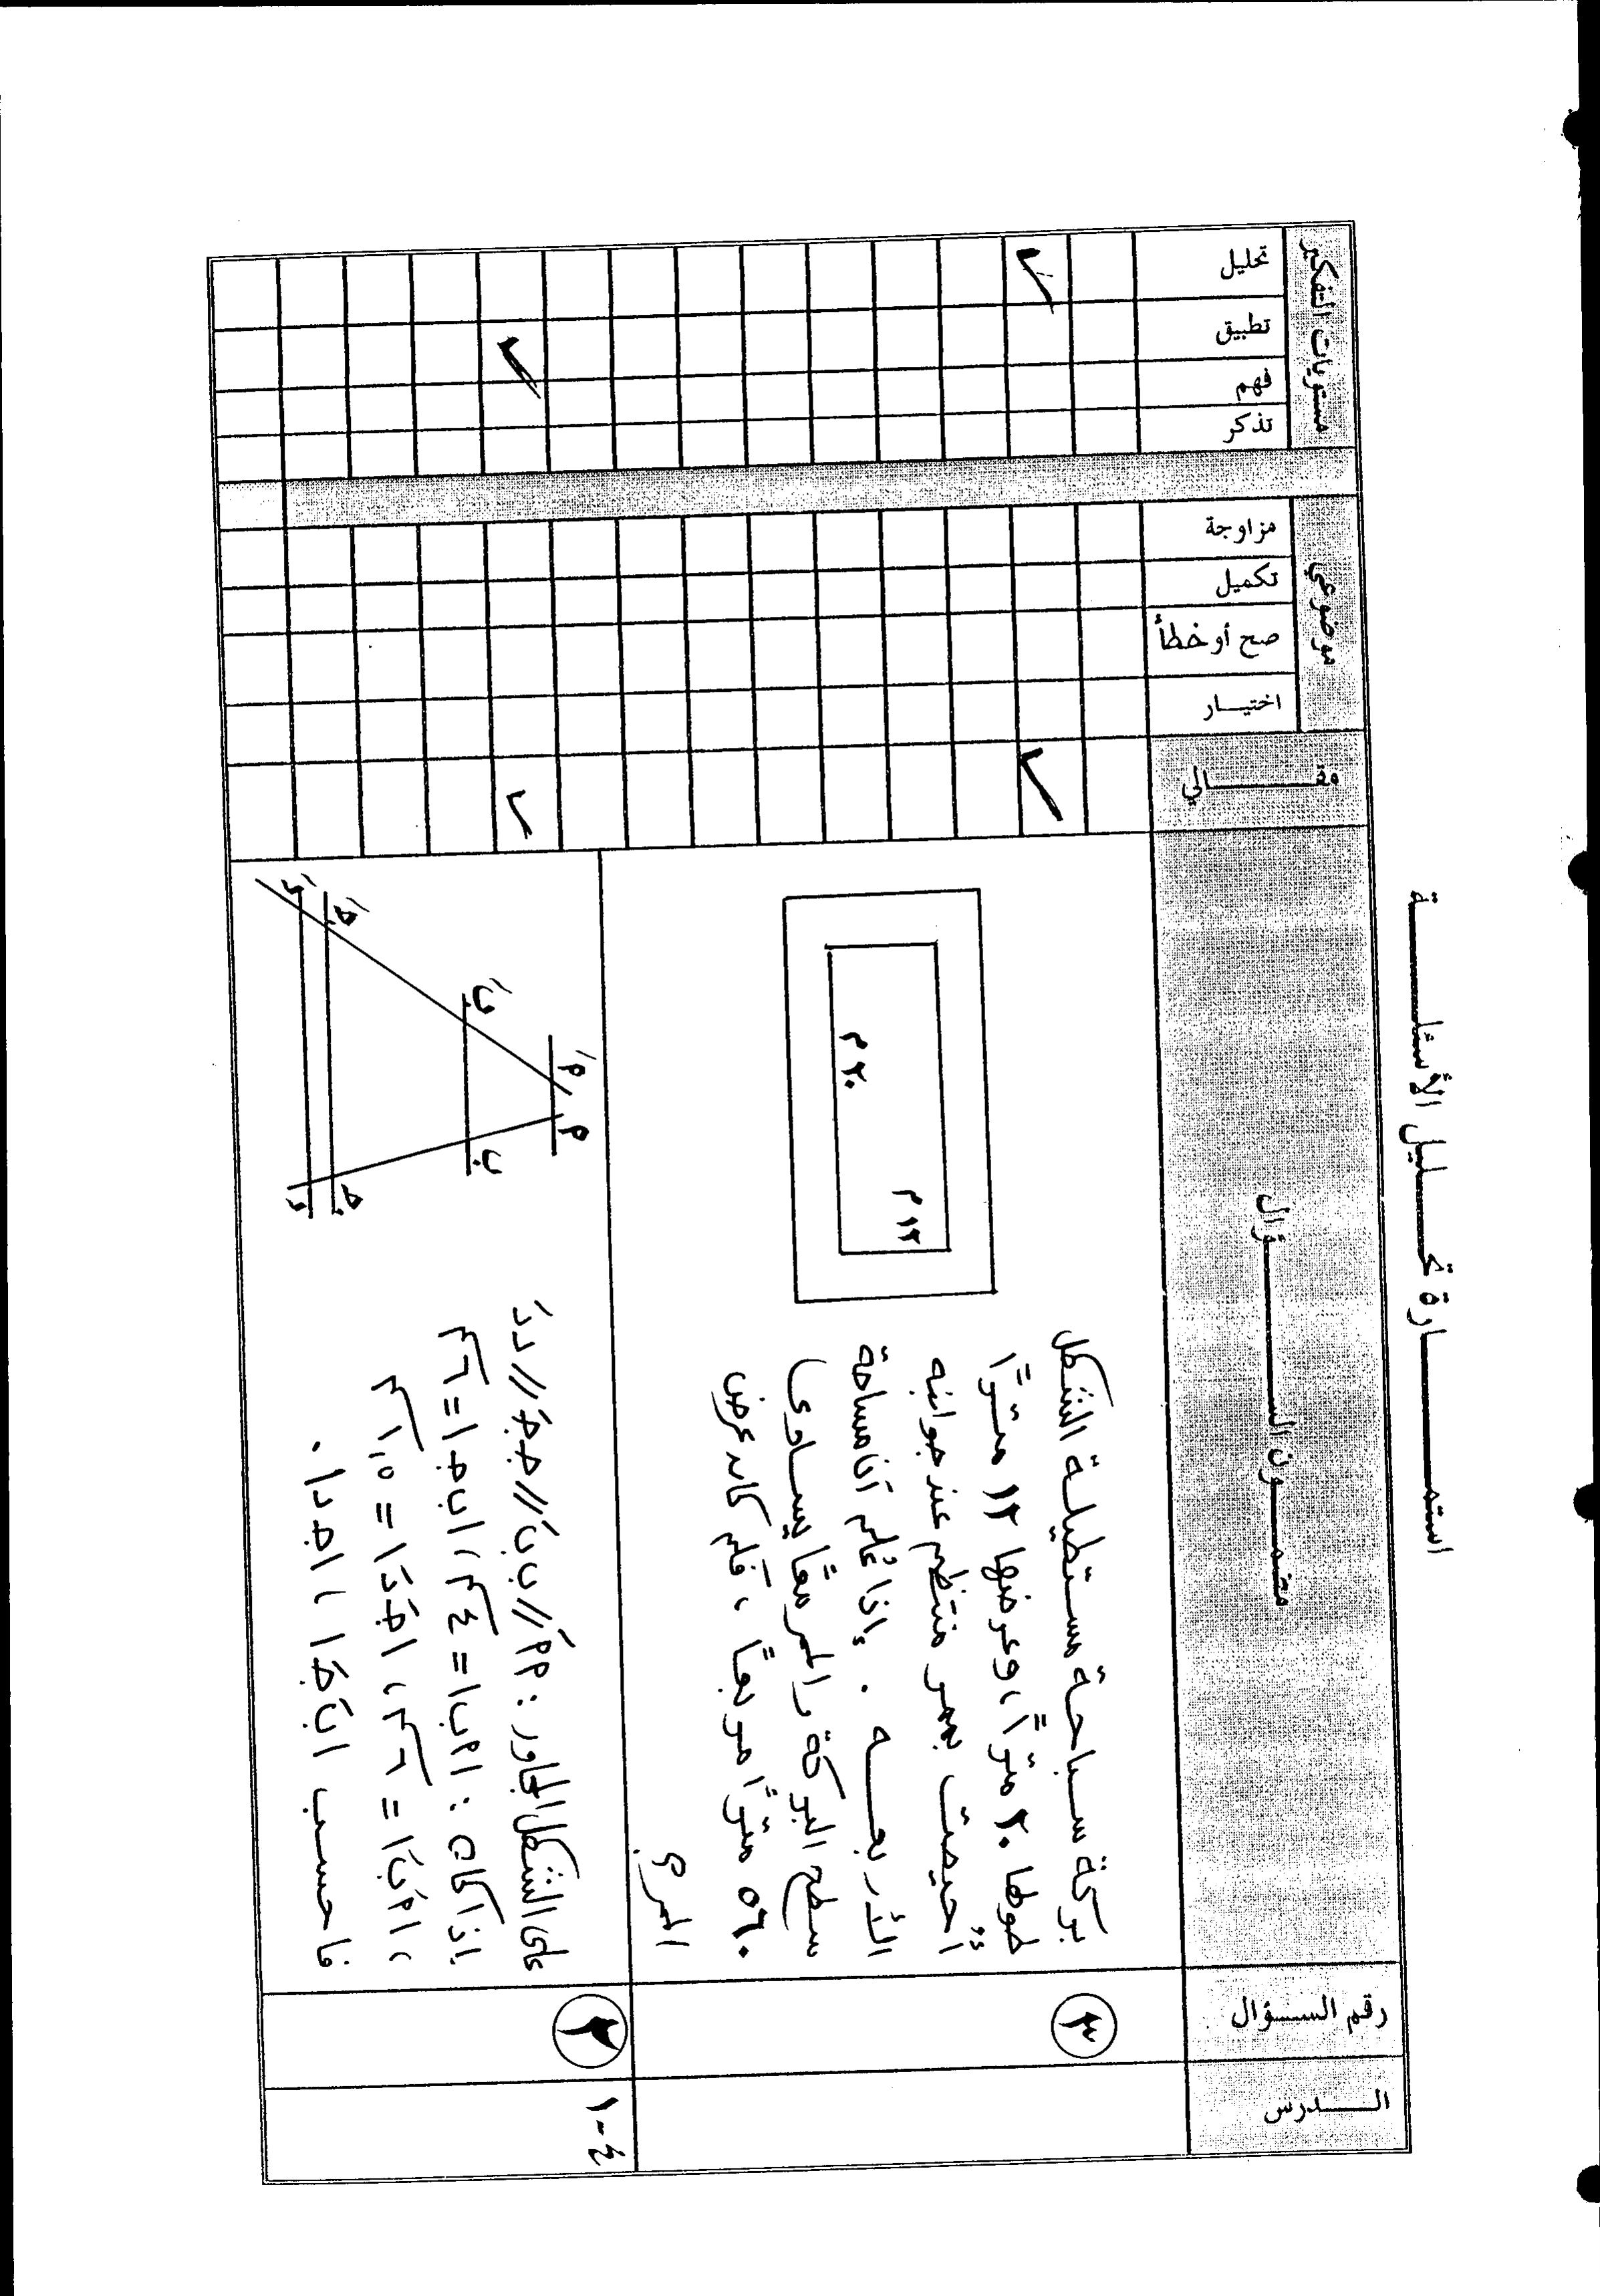 استمارة تحليل الأسئلة
الدرس
رقم السؤال
مضمون السؤال
مقالي
موضوعي
اختيار
صح أو خطأ
تكميل
مزاوجة
مستويات التفكير
تذكر
فهم
تطبيق
تحليل
٣
بركة سباحة مستطيلة الشكل
طولها ٢٠ مترًا، وعرضها ١٢ مترًا
أُحيطت بممر منتظم عند جوانبه
الأربعه . إذا عُلم أن مساحة
سطح البركة والممر معًا يساوي
٥٦٠ مترًا مربعًا ، فكم كان عرض
الممر؟
٢٠ م
١٢ م
٤-١
٢
على الشكل المجاور : ١١َ // ب بَ // جـ جـَ // د دَ
إذا كان : |اب| = ٤سم ، |ب جـ| = ٦سم
، |اَبَ| = ٦سم ، |جـَ دَ| = ١,٥سم
فاحسب |بَ جـَ| ، |جـ د| .
اَ
ا
بَ
ب
جـَ
جـ
دَ
د